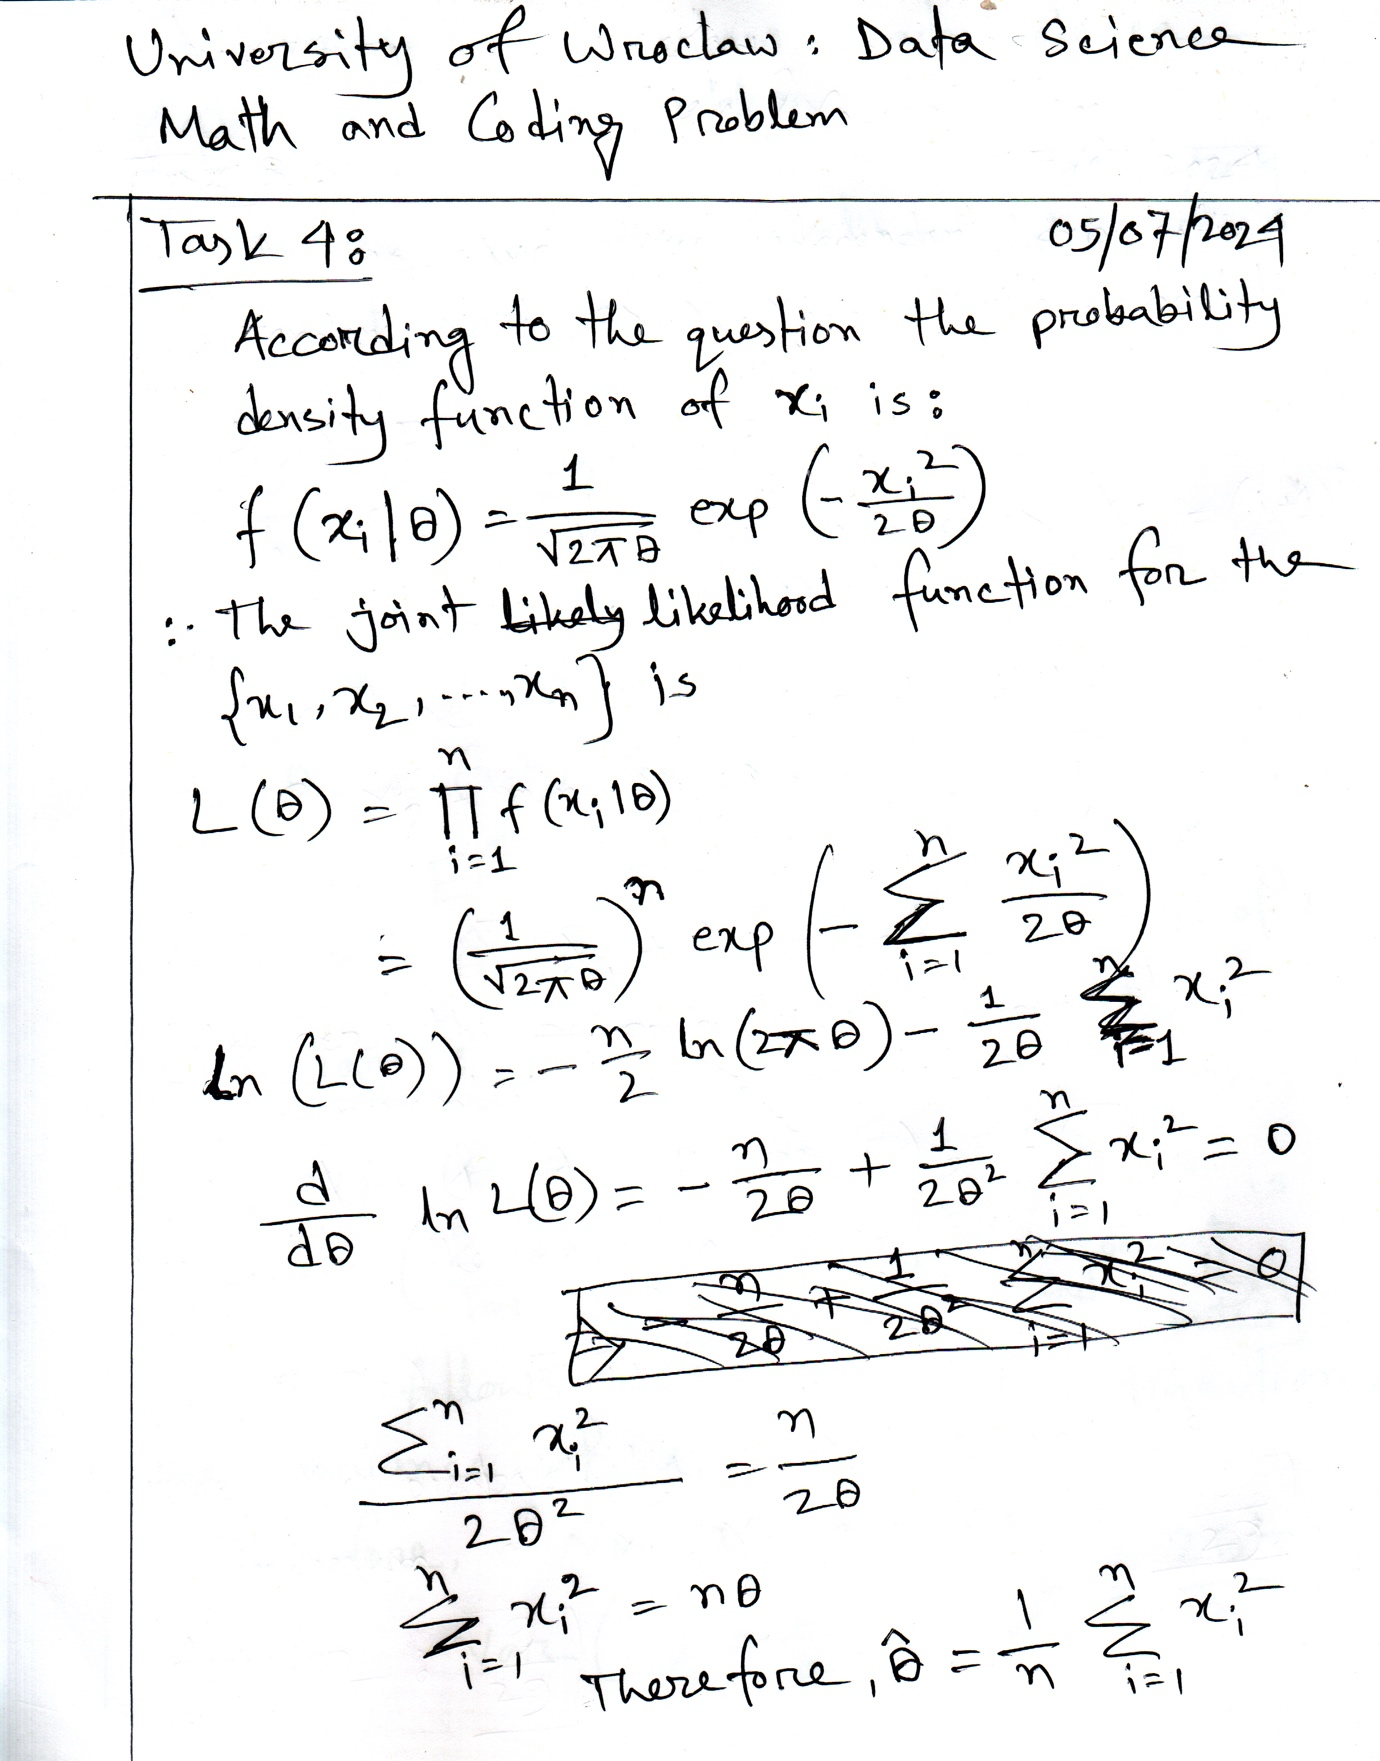 University of Wroclaw: Data Science
Math and Coding Problem
Task 4:
05/07/2024
According to the question the probability
density function of xᵢ is:
f (xᵢ|θ) = 1/√(2πθ) exp (-xᵢ²/2θ)
∴ The joint ~~Likely~~ likelihood function for the
{x₁, x₂, ...., xₙ} is
L(θ) = ∏ᵢ₌₁ⁿ f(xᵢ|θ)
= (1/√(2πθ))ⁿ exp (-∑ᵢ₌₁ⁿ xᵢ²/2θ)
ln (L(θ)) = - n/2 ln(2πθ) - 1/2θ ∑ᵢ₌₁ⁿ xᵢ²
d/dθ ln L(θ) = - n/2θ + 1/2θ² ∑ᵢ₌₁ⁿ xᵢ² = 0
~~⇒ - n/2θ + 1/2θ² ∑ᵢ₌₁ⁿ xᵢ² = 0~~
∑ᵢ₌₁ⁿ xᵢ² / 2θ² = n/2θ
∑ᵢ₌₁ⁿ xᵢ² = nθ
Therefore, θ̂ = 1/n ∑ᵢ₌₁ⁿ xᵢ²